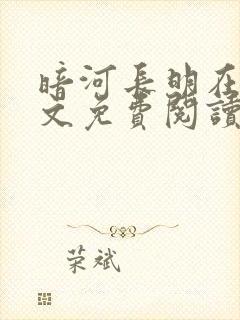 暗河長明在
文免費閱讀
荣斌